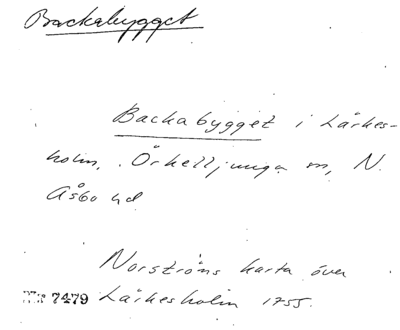 Backabygget
Backabygget i Lärkes-
holm, Örkelljunga sn, N.
Åsbo hd
Norströms karta över
7479 Lärkesholm 1755.